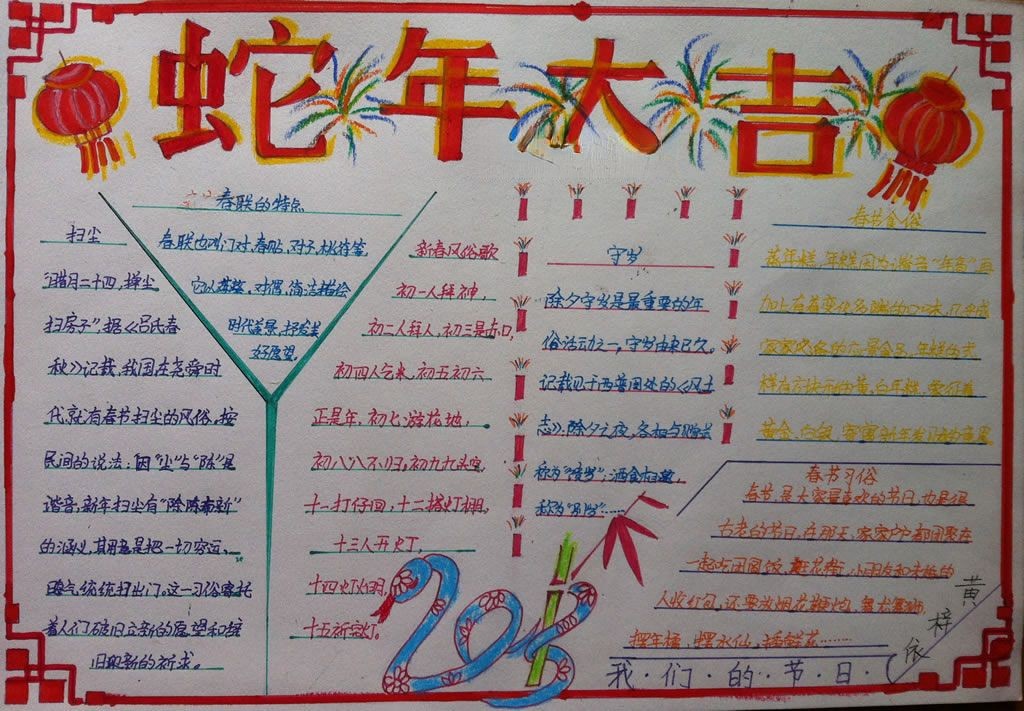 蛇年大吉
春联的特点
春联也叫门对、春贴、对子、桃符等,
它以工整、对偶、简洁描绘
时代背景,抒发美
好愿望。
扫尘
"腊月二十四,掸尘
扫房子",据《吕氏春
秋》记载,我国在尧舜时
代就有春节扫尘的风俗。按
民间的说法:因"尘"与"陈"是
谐音,新年扫尘有"除陈布新"
的涵义,其用意是把一切穷运、
晦气统统扫出门。这一习俗寄托
着人们破旧立新的愿望和辞
旧迎新的祈求。
新春风俗歌
初一人拜神,
初二人拜人,初三是赤口,
初四人乞米,初五初六
正是年,初七游花地,
初八八不归,初九九头空,
十一打仔回,十二搭灯棚,
十三人开灯,
十四灯火明,
十五祈完灯。
守岁
除夕守岁是最重要的年
俗活动之一,守岁由来已久。
记载见于西晋周处的《风土
志》:除夕之夜,各相与赠送
称为"馈岁";酒食相邀,
称为"别岁"……
春节食俗
蒸年糕,年糕因为谐音"年高",再
加上有着变化多端的口味,几乎成
家家必备的应景食品。年糕的式
样有方块形的黄、白年糕,象征着
黄金、白银,寄寓新年发财的意思
春节习俗
春节,是大家最喜欢的节日,也是很
古老的节日,在那天,家家户户都团聚在
一起吃团圆饭,逛花街,小朋友和未婚的
人收红包,还要放烟花鞭炮,舞龙舞狮,
摆年橘,摆水仙,插鲜花……
2013
我·们·的·节·日·(
黄梓依